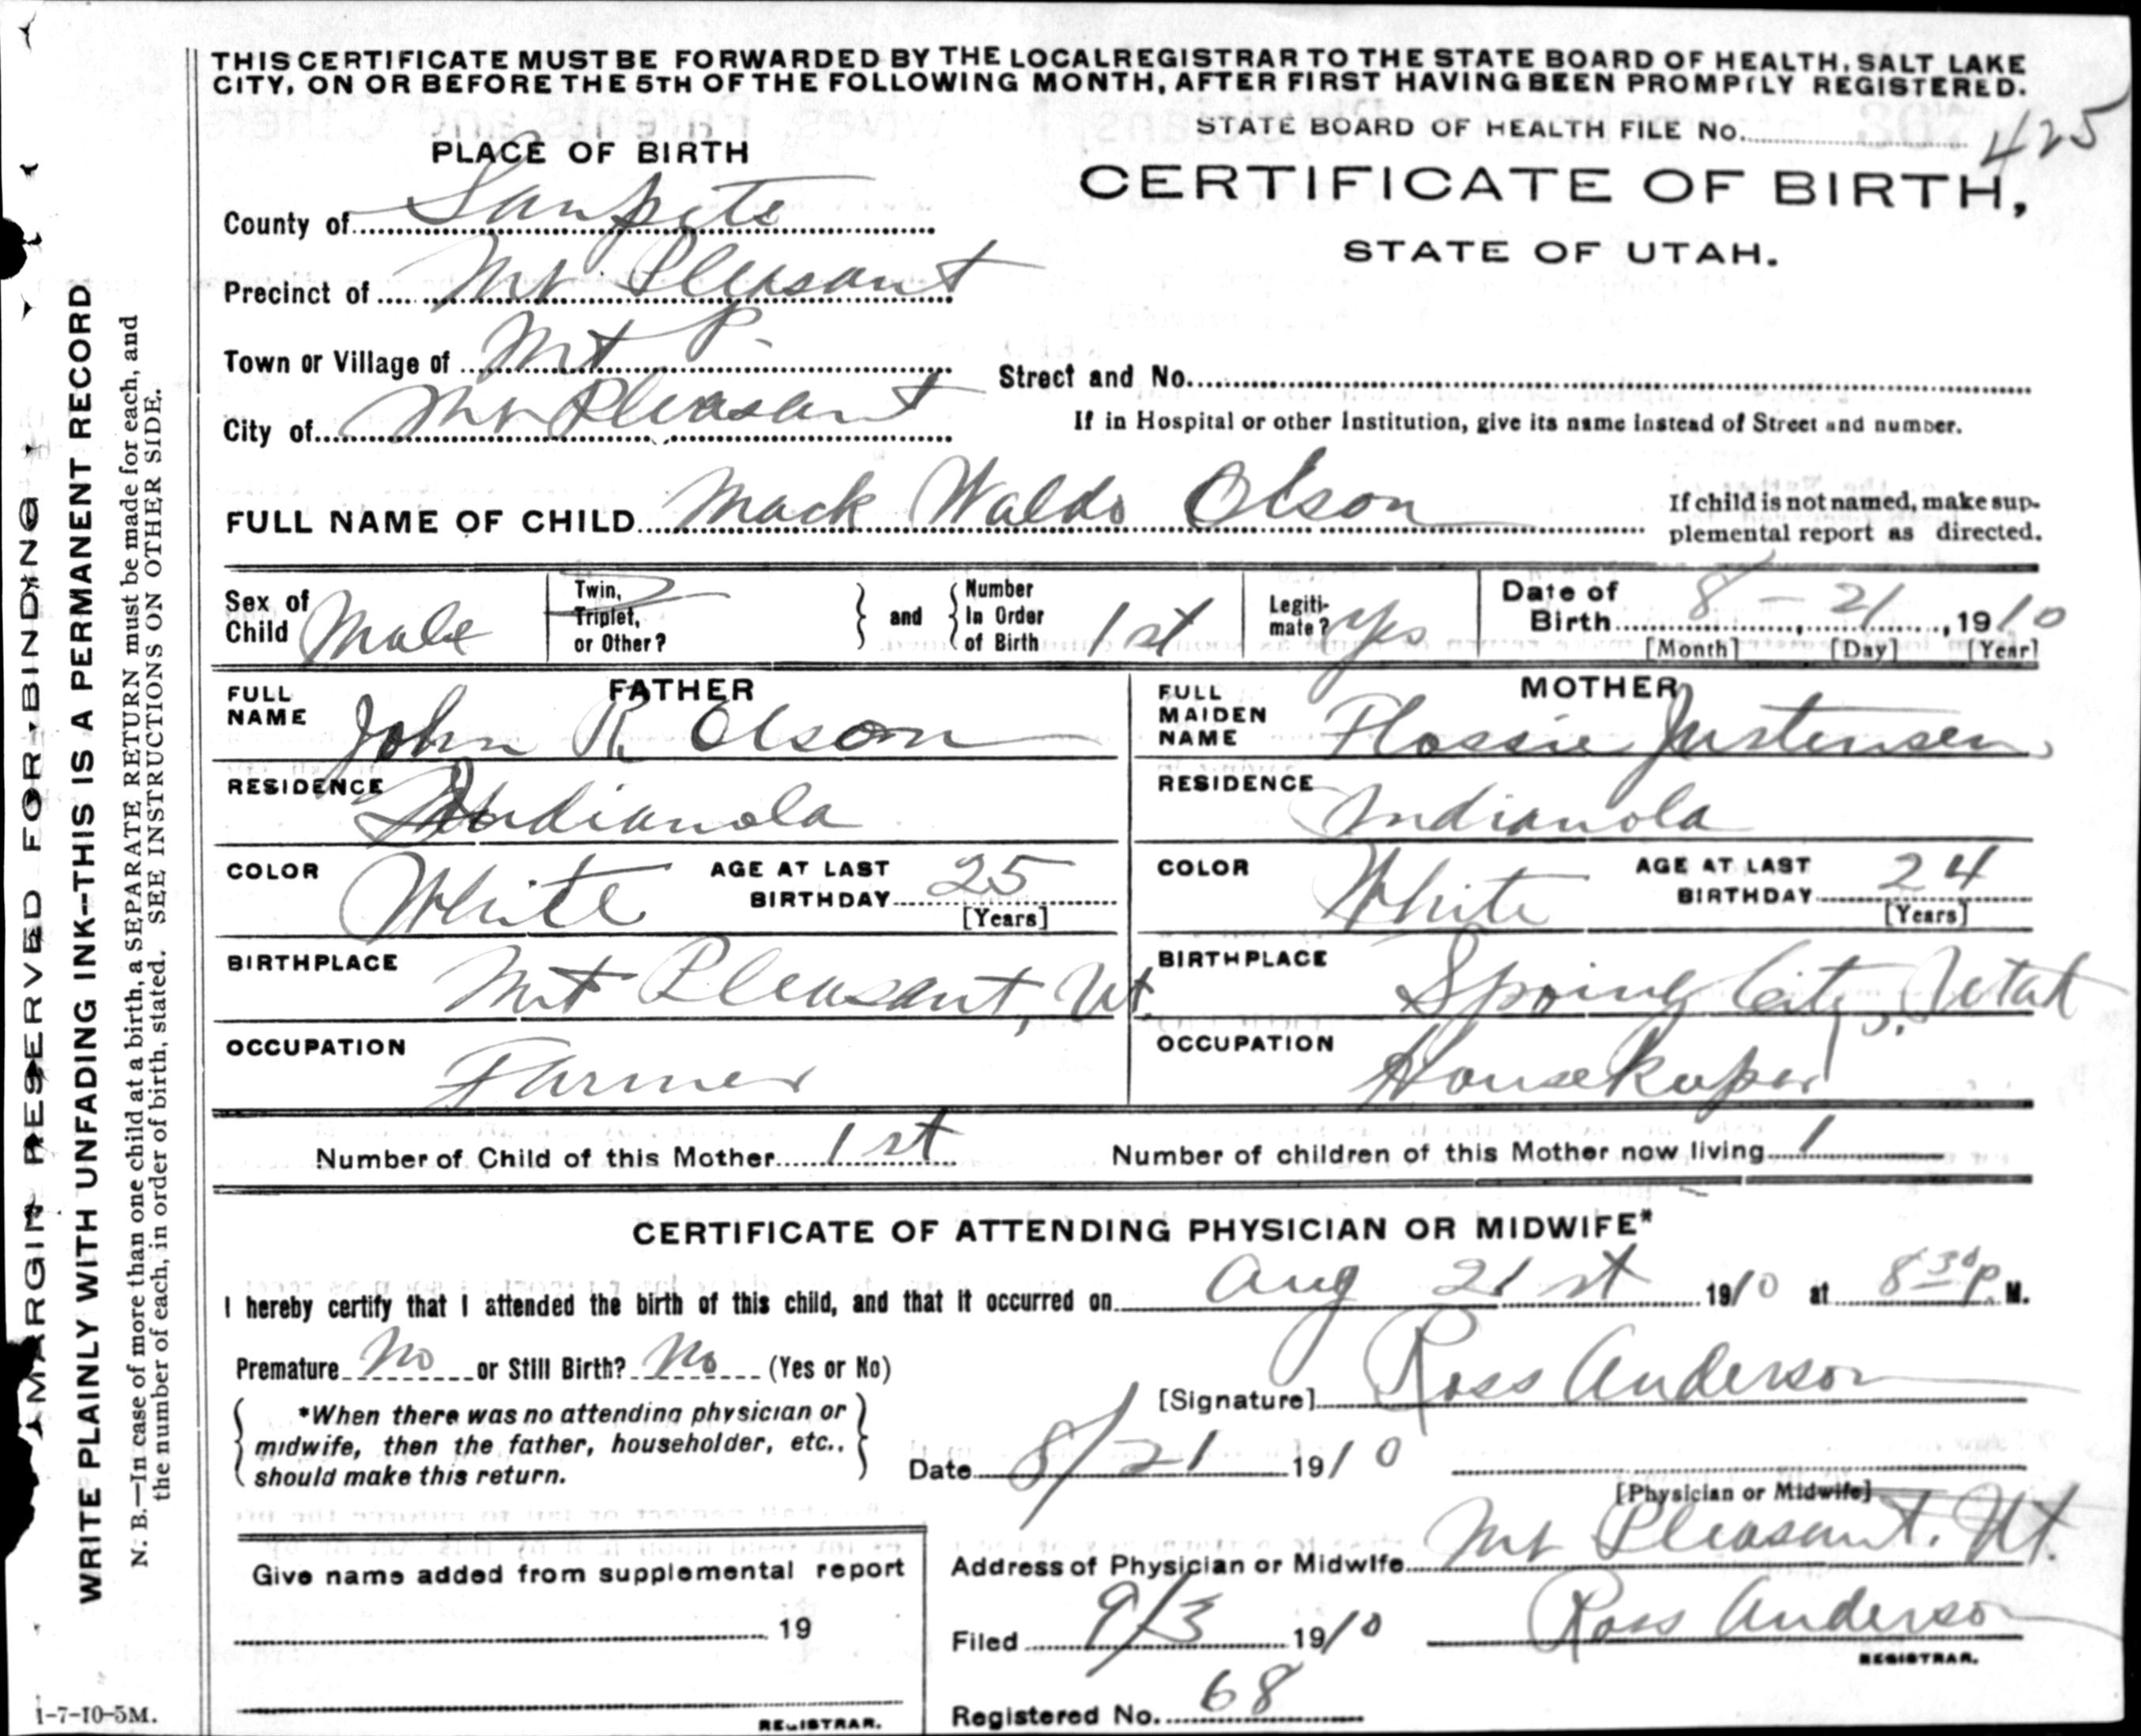 THIS CERTIFICATE MUST BE FORWARDED BY THE LOCAL REGISTRAR TO THE STATE BOARD OF HEALTH, SALT LAKE
CITY, ON OR BEFORE THE 5TH OF THE FOLLOWING MONTH, AFTER FIRST HAVING BEEN PROMPTLY REGISTERED.
STATE BOARD OF HEALTH FILE No. 425
PLACE OF BIRTH
CERTIFICATE OF BIRTH,
STATE OF UTAH.
County of Sanpete
Precinct of Mt Pleasant
Town or Village of Mt P.
Street and No.
City of Mt Pleasant
If in Hospital or other Institution, give its name instead of Street and number.
FULL NAME OF CHILD Mack Waldo Olson
If child is not named, make sup-
plemental report as directed.
Sex of Child Male
Twin, Triplet, or Other?
and Number In Order of Birth 1st
Legiti-mate? Yes
Date of Birth 8 - 21, 1910
[Month] [Day] [Year]
FATHER
FULL NAME John R Olson
MOTHER
FULL MAIDEN NAME Flossie Justensen
RESIDENCE Indianola
RESIDENCE Indianola
COLOR White AGE AT LAST BIRTHDAY 25 [Years]
COLOR White AGE AT LAST BIRTHDAY 24 [Years]
BIRTHPLACE Mt Pleasant, Ut.
BIRTHPLACE Spring City, Utah
OCCUPATION Farmer
OCCUPATION Housekeeper
Number of Child of this Mother 1st
Number of children of this Mother now living 1
CERTIFICATE OF ATTENDING PHYSICIAN OR MIDWIFE*
I hereby certify that I attended the birth of this child, and that it occurred on Aug 21st 1910 at 8 30 P. M.
Premature No or Still Birth? No (Yes or No)
[Signature] Ross Anderson
*When there was no attending physician or
midwife, then the father, householder, etc.,
should make this return.
Date 8/21 1910
[Physician or Midwife]
Address of Physician or Midwife Mt Pleasant. Ut.
Give name added from supplemental report
19
REGISTRAR.
Filed 9/3 1910 Ross Anderson
REGISTRAR.
Registered No. 68
MARGIN RESERVED FOR BINDING
WRITE PLAINLY WITH UNFADING INK--THIS IS A PERMANENT RECORD
N. B.—In case of more than one child at a birth, a SEPARATE RETURN must be made for each, and
the number of each, in order of birth, stated. SEE INSTRUCTIONS ON OTHER SIDE.
1-7-10-5M.